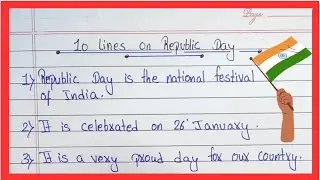 Page
10 Lines on Republic Day
1) Republic Day is the national festival
of India.
2) It is celebrated on 26 January.
3) It is a very proud day for our country.